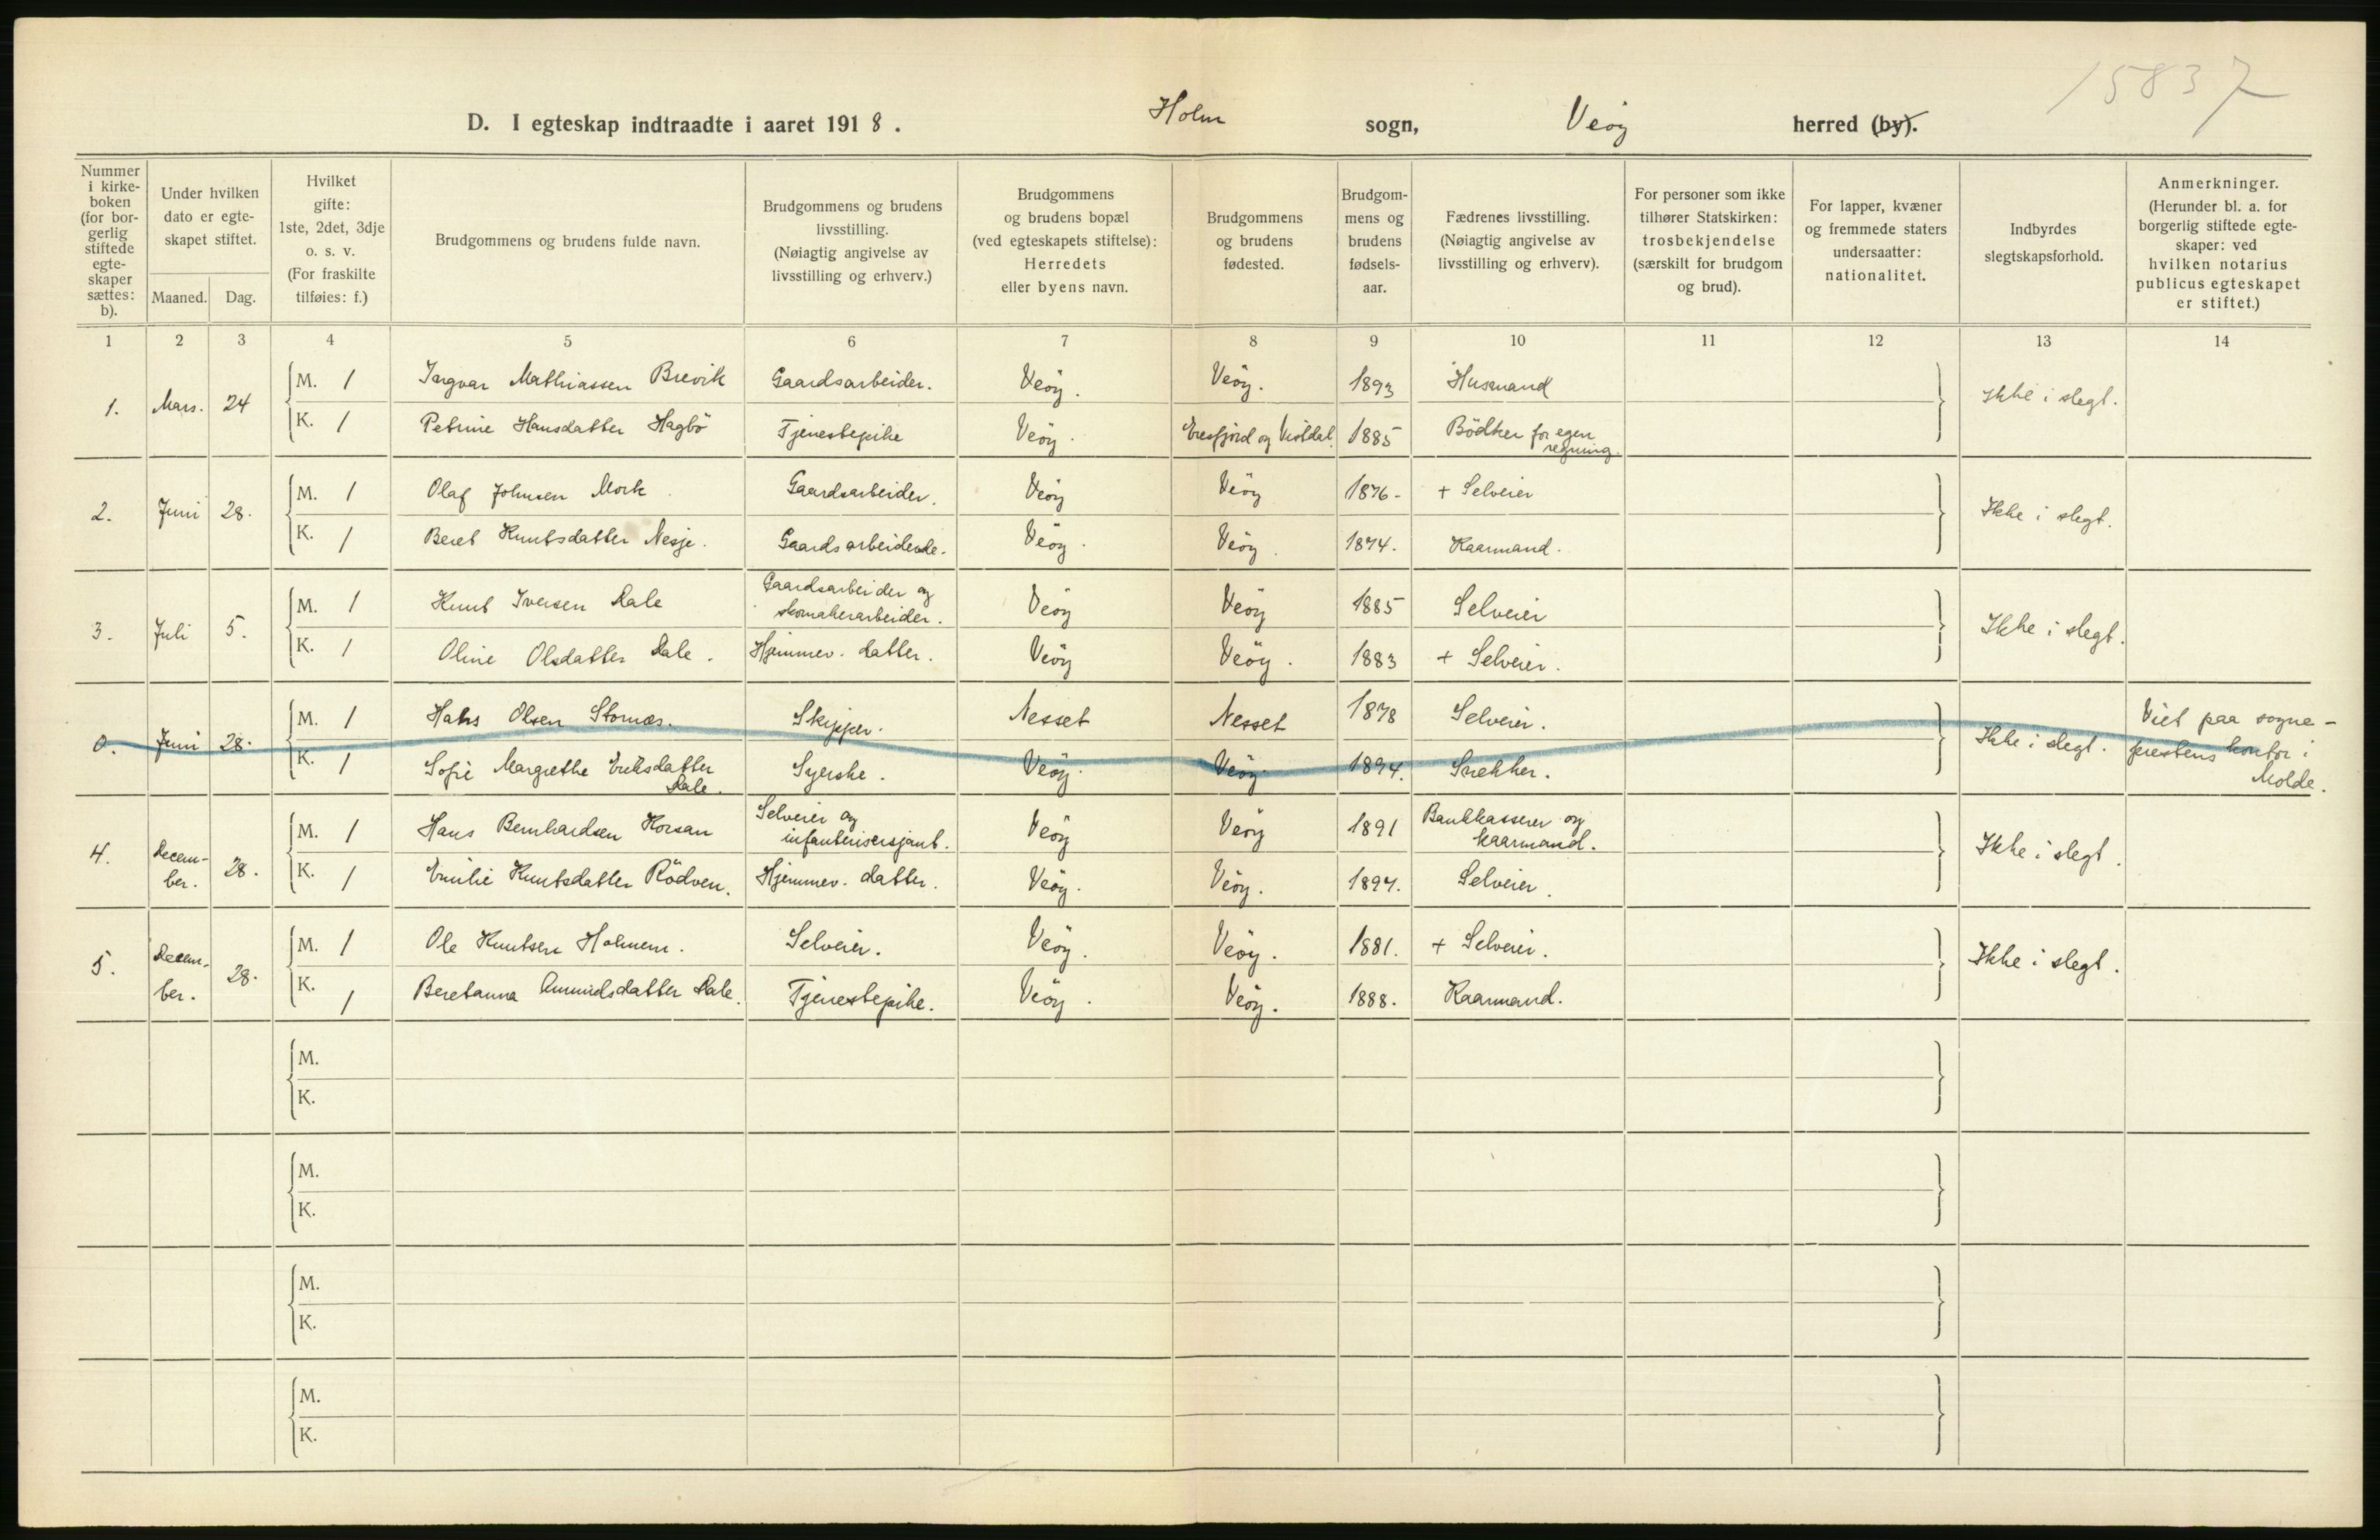 15837
D. I egteskap indtraadte i aaret 1918. Holm sogn, Veöy herred (by).
Nummer i kirkeboken (for borgerlig stiftede egteskaper sættes: b).
Under hvilken dato er egteskapet stiftet.
Maaned. Dag.
Hvilket gifte: 1ste, 2det, 3dje o. s. v. (For fraskilte tilføies: f.)
Brudgommens og brudens fulde navn.
Brudgommens og brudens livsstilling. (Nøiagtig angivelse av livsstilling og erhverv.)
Brudgommens og brudens bopæl (ved egteskapets stiftelse): Herredets eller byens navn.
Brudgommens og brudens fødested.
Brudgommens og brudens fødselsaar.
Fædrenes livsstilling. (Nøiagtig angivelse av livsstilling og erhverv).
For personer som ikke tilhører Statskirken: trosbekjendelse (særskilt for brudgom og brud).
For lapper, kvæner og fremmede staters undersaatter: nationalitet.
Indbyrdes slegtskapsforhold.
Anmerkninger. (Herunder bl. a. for borgerlig stiftede egteskaper: ved hvilken notarius publicus egteskapet er stiftet.)
1 2 3 4 5 6 7 8 9 10 11 12 13 14
1. Mars. 24 M. 1 Ingvar Mathiassen Brevik Gaardsarbeider. Veöy. Veöy. 1893 Husmand Ikke i slegt.
K. 1 Petrine Hansdatter Hagbö Tjenestepike Veöy. Eresfjord og Vistdal. 1885 Bödker for egen regning.
2. Juni 28. M. 1 Olaf Johnsen Mork. Gaardsarbeider. Veöy Veöy 1876- + Selveier Ikke i slegt.
K. 1 Beret Knutsdatter Nesje. Gaardsarbeidende. Veöy. Veöy. 1874. Kaarmand.
3. Juli 5. M. 1 Knut Iversen Dale Gaardsarbeider og skomakerarbeider. Veöy Veöy 1885 Selveier Ikke i slegt.
K. 1 Oline Olsdatter Dale. Hjemmev. datter. Veöy Veöy. 1883 + Selveier.
0. Juni 28. M. 1 Hans Olsen Stornæs. Skipper. Nesset Nesset 1878 Selveier. Ikke i slegt. Viet paa sogneprestens kontor i Molde.
K. 1 Sofie Margrethe Eriksdatter Dale. Syerske. Veöy. Veöy 1894. Snekker.
4. December. 28. M. 1 Hans Bernhardsen Horsan Selveier og infanterisersjant. Veöy Veöy 1891 Bankkasserer og kaarmand. Ikke i slegt.
K. 1 Emilie Knutsdatter Rödven. Hjemmev. datter. Veöy. Veöy. 1897. Selveier.
5. December. 28. M. 1 Ole Knutsen Holmem. Selveier. Veöy. Veöy. 1881. + Selveier. Ikke i slegt.
K. 1 Beretanna Amundsdatter Dale. Tjenestepike. Veöy. Veöy. 1888. Kaarmand.
M.
K.
M.
K.
M.
K.
M.
K.